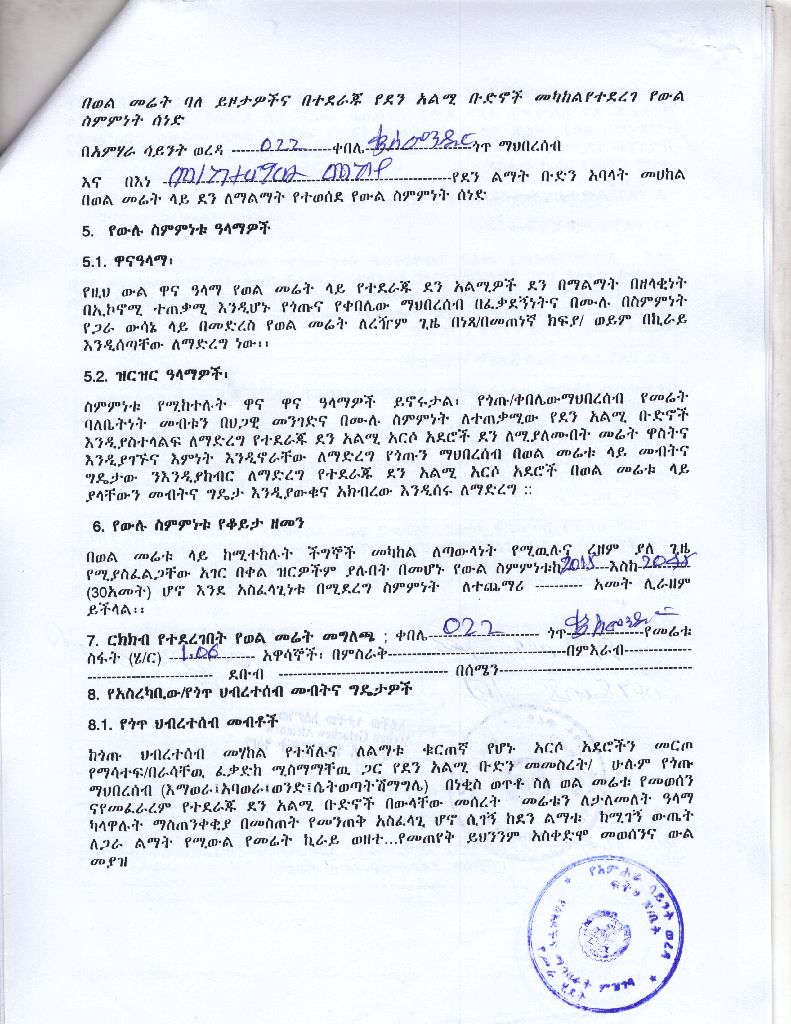 በወል መሬት ባለ ይዞታዎችና በተደራጁ የደን አልሚ ቡድኖች መካከልየተደረገ የውል
ስምምነት ሰነድ
በአምሃራ ሳይንት ወረዳ ------- 022 -------ቀበሌ ---------ጎጥ ማህበረሰብ
እና በእነ ------------------የደን ልማት ቡድን አባላት መሀከል
በወል መሬት ላይ ደን ለማልማት የተወሰደ የውል ስምምነት ሰነድ
5. የውሉ ስምምነቱ ዓላማዎች
5.1. ዋናዓላማ፡
የዚህ ውል ዋና ዓላማ የወል መሬት ላይ የተደራጁ ደን አልሚዎች ደን በማልማት በዘላቂነት
በኢኮኖሚ ተጠቃሚ እንዲሆኑ የጎጡና የቀበሌው ማህበረሰብ በፈቃደኝነትና በሙሉ በስምምነት
የጋራ ውሳኔ ላይ በመድረስ የወል መሬት ለረዥም ጊዜ በነጻ/በመጠነኛ ክፍያ/ ወይም በኪራይ
እንዲሰጣቸው ለማድረግ ነው፡፡
5.2. ዝርዝር ዓላማዎች፡
ስምምነቱ የሚከተሉት ዋና ዋና ዓላማዎች ይኖሩታል፡ የጎጡ/ቀበሌውማህበረሰብ የመሬት
ባለቤትነት መብቱን በህጋዊ መንገድና በሙሉ ስምምነት ለተጠቃሚው የደን አልሚ ቡድኖች
እንዲያስተላልፍ ለማድረግ የተደራጁ ደን አልሚ አርሶ አደሮች ደን ለሚያለሙበት መሬት ዋስትና
እንዲያገኙና እምነት እንዲኖራቸው ለማድረግ የጎጡን ማህበረሰብ በወል መሬቱ ላይ መብትና
ግዴታው ንእንዲያከብር ለማድረግ የተደራጁ ደን አልሚ አርሶ አደሮች በወል መሬቱ ላይ
ያላቸውን መብትና ግዴታ እንዲያውቁና አክብረው እንዲሰሩ ለማድረግ ::
6. የውሉ ስምምነቱ የቆይታ ዘመን
በወል መሬቱ ላይ ከሚተከሉት ችግኞች መካከል ለጣውላነት የሚዉሉና ረዘም ያለ ጊዜ
የሚያስፈልጋቸው አገር በቀል ዝርዎችም ያሉበት በመሆኑ የውል ስምምነቱከ2015---እስከ-2045
(30አመት) ሆኖ እንደ አስፈላጊነቱ በሚደረግ ስምምነት ለተጨማሪ ---------- አመት ሊራዘም
ይችላል፡፡
7. ርክክብ የተደረገበት የወል መሬት መግለጫ ; ቀበሌ-- 022 ---------- ጎጥ---------የመሬቱ
ስፋት (ሄ/ር) --1.06------- አዋሳኞች፡ በምስራቅ-------------------------በምእራብ-------------
------------------------ ደቡብ -------------------------------- በሰሜን----------------------------------
8. የአስረካቢው/የጎጥ ህብረተሰብ መብትና ግዴታዎች
8.1. የጎጥ ህብረተሰብ መብቶች
ከጎጡ ህብረተሰብ መሃከል የተሻሉና ለልማቱ ቁርጠኛ የሆኑ አርሶ አደሮችን መርጦ
የማሳተፍ/በራሳቸዉ ፈቃድከ ሚስማማቸዉ ጋር የደን አልሚ ቡድን መመስረት/ ሁሉም የጎጡ
ማህበረሰብ (እማወራ፤አባወራ፤ወንድ፤ሴትወጣትሽማግሌ) በነቂስ ወጥቶ ስለ ወል መሬቱ የመወሰን
ናየመፈራረም የተደራጁ ደን አልሚ ቡድኖች በውላቸው መሰረት መሬቱን ለታለመለት ዓላማ
ካላዋሉት ማስጠንቀቂያ በመስጠት የመንጠቅ አስፈላጊ ሆኖ ሲገኝ ከደን ልማቱ ከሚገኝ ውጤት
ለጋራ ልማት የሚውል የመሬት ኪራይ ወዘተ...የመጠየቅ ይህንንም አስቀድሞ መወሰንና ውል
መያዝ
የአምሐራ ሳይንት ወረዳ